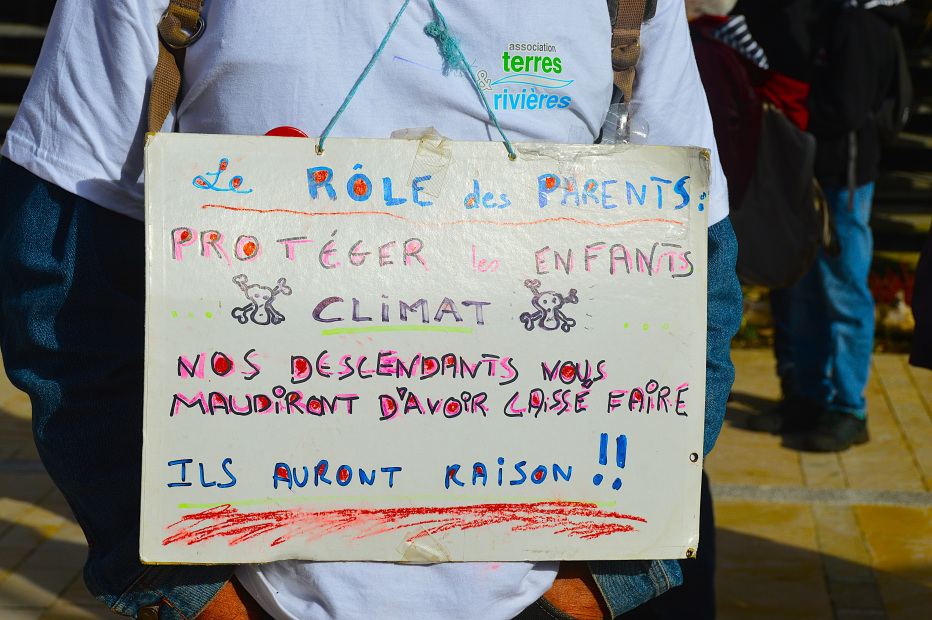 association
terres
& rivières
Le RÔLE des PARENTS:
PROTÉGER les ENFANTS
.... CLiMAT ....
NOS DESCENDANTS NOUS
MAUDIRONT D'AVOIR LAISSÉ FAIRE
ILS AURONT RAISON !!